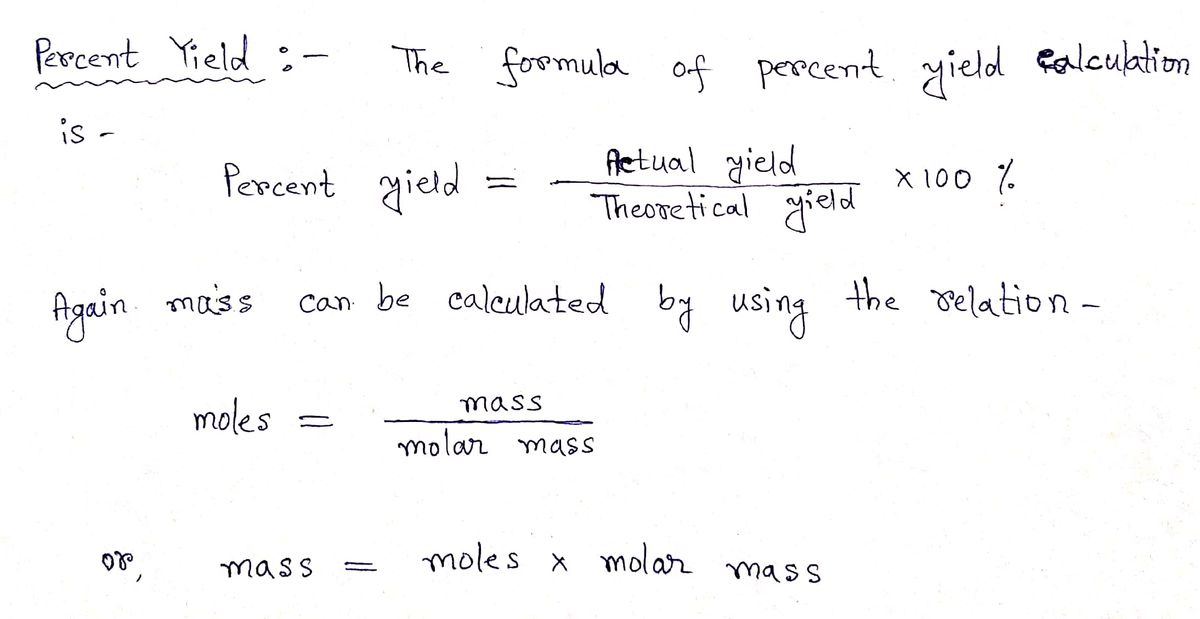 Percent Yield :- The formula of percent yield calculation
is -
Percent yield = Actual yield / Theoretical yield × 100 %
Again mass can be calculated by using the relation -
moles = mass / molar mass
or, mass = moles × molar mass